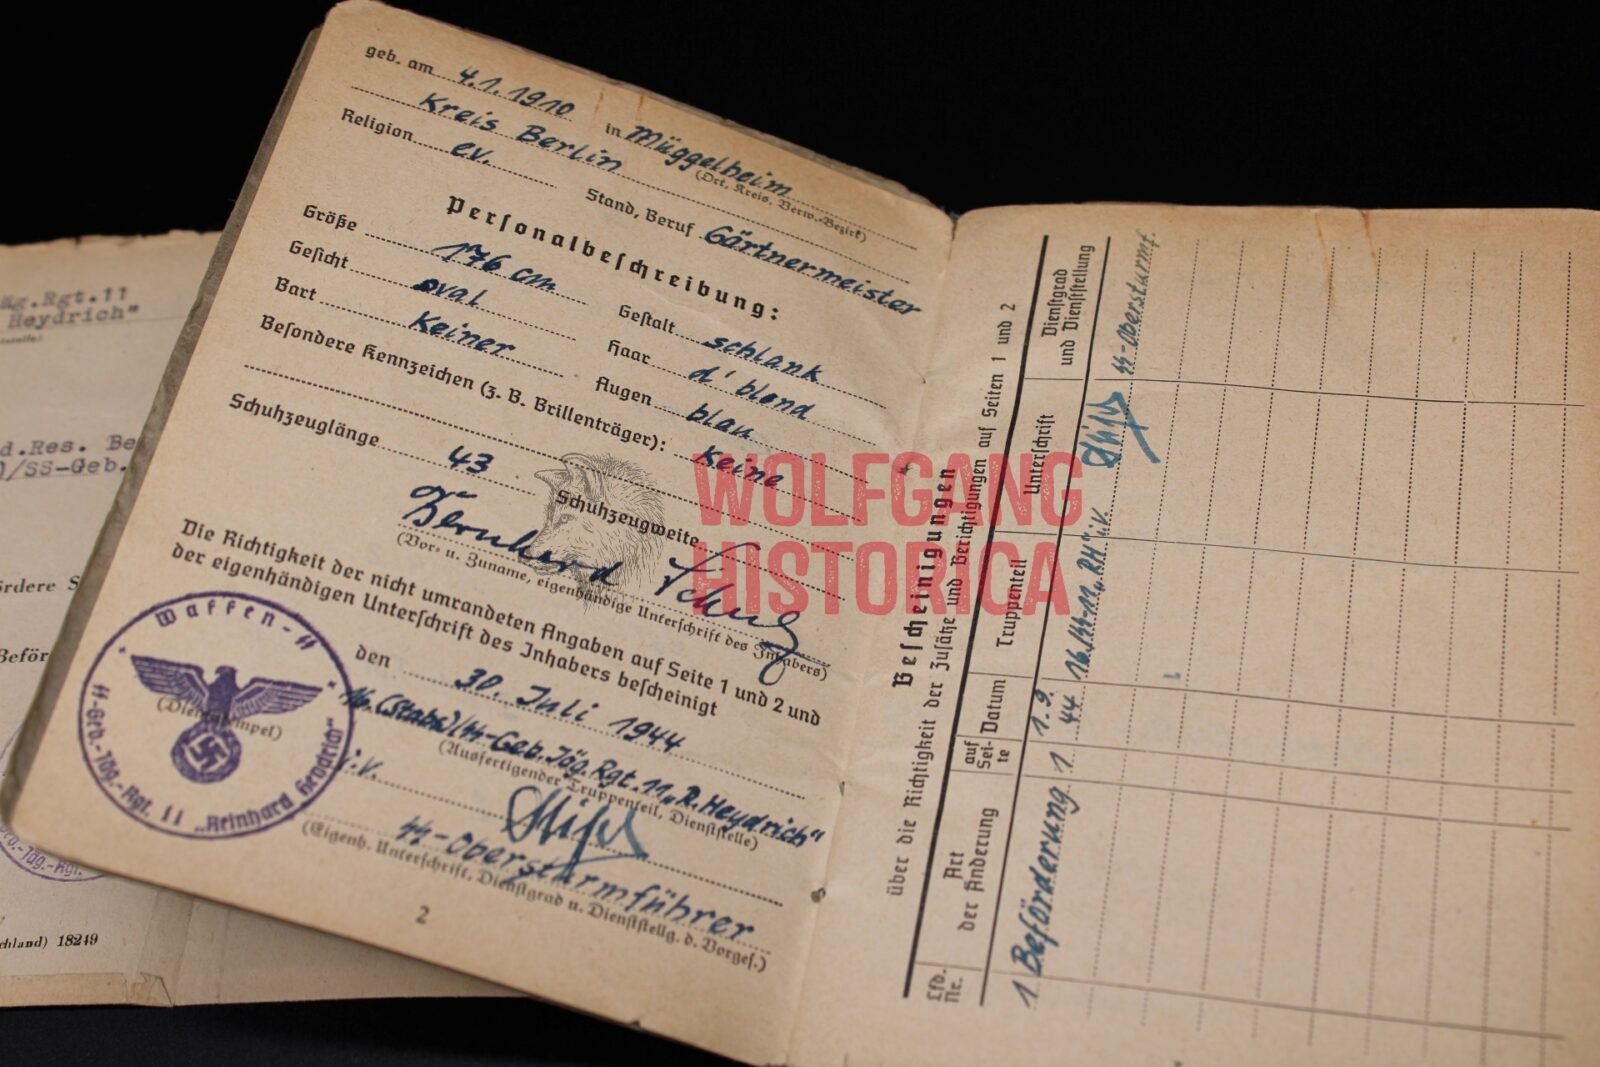 äg.Rgt.11
Heydrich"
d.Res. Be
)/SS-Geb.
ördere S
Beför
chland) 18249
geb. am 4.1.1910 in Müggelheim
Kreis Berlin (Ort, Kreis, Verw.-Bezirk)
Religion ev. Stand, Beruf Gärtnermeister
Personalbeschreibung:
Größe 176 cm Gestalt schlank
Gesicht oval Haar d'blond
Bart Keiner Augen blau
Besondere Kennzeichen (z. B. Brillenträger): Keine
Schuhzeuglänge 43 Schuhzeugweite
Bernhard
(Vor- u. Zuname, eigenhändige Unterschrift des Inhabers)
Die Richtigkeit der nicht umrandeten Angaben auf Seite 1 und 2 und
der eigenhändigen Unterschrift des Inhabers bescheinigt
den 30. Juli 1944
16.(Stabs)/SS-Geb.Jäg.Rgt.11„R.Heydrich"
(Ausfertigender Truppenteil, Dienststelle)
i.V.
SS-Obersturmführer
(Eigenh. Unterschrift, Dienstgrad u. Dienststellg. d. Vorges.)
2
Waffen-SS
SS-Geb.-Jäg.-Rgt. 11 „Reinhard Heydrich"
(Dienststempel)
Bescheinigungen
über die Richtigkeit der Zusätze und Berichtigungen auf Seiten 1 und 2
Lfd. Nr.
Art der Änderung
auf Seite
Datum
Truppenteil
Unterschrift
Dienstgrad und Dienststellung
1 Beförderung 1 1.9.44 16./SS-11„RH" i.V. SS-Obersturmf.
WOLFGANG
HISTORICA